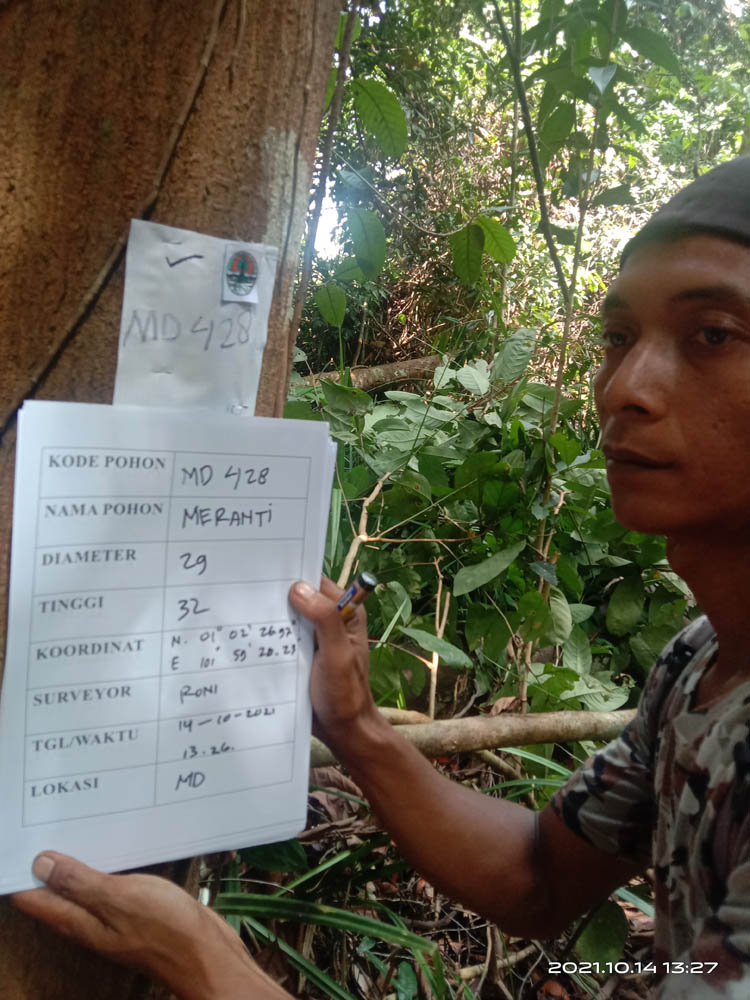 MD 428
KODE POHON MD 428
NAMA POHON MERANTI
DIAMETER 29
TINGGI 32
KOORDINAT N. 01° 02' 26.97"
E 101° 59' 20.29"
SURVEYOR RONI
TGL/WAKTU 14-10-2021
13.26.
LOKASI MD
2021.10.14 13:27